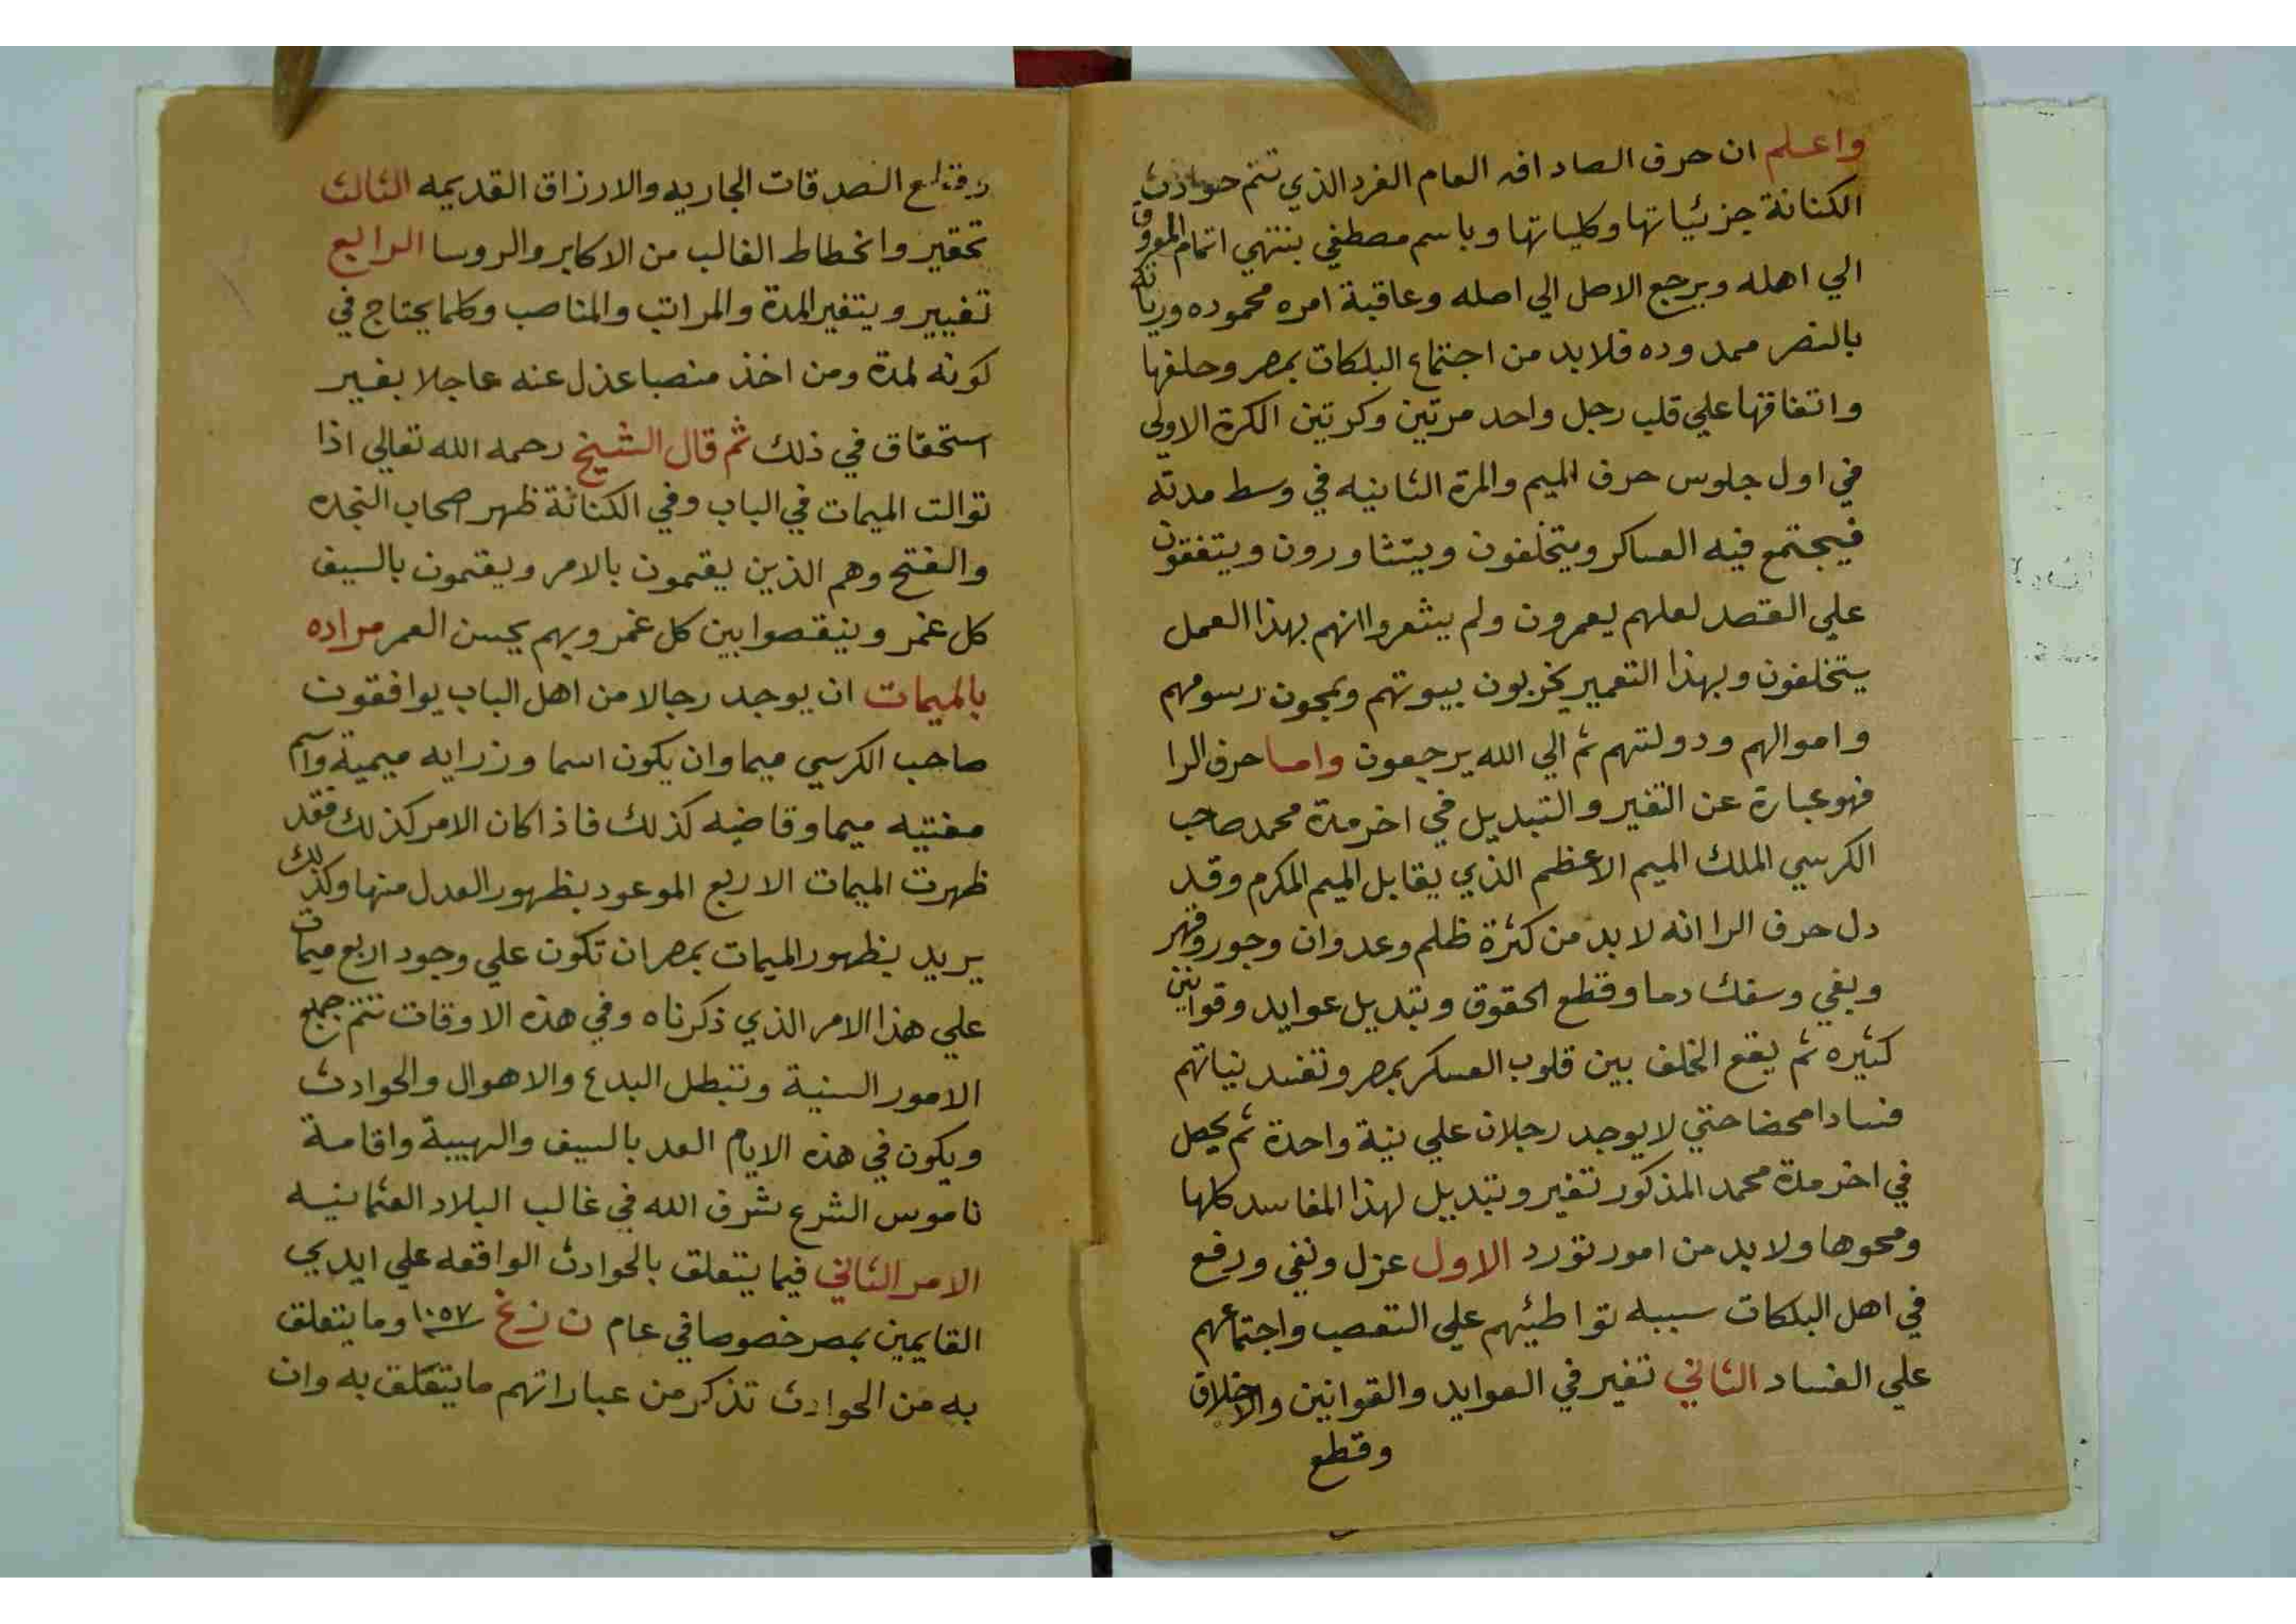 واعلم ان حرف الصاد افه العام الفرد الذي تتم حوادث
الكنانة جزئياتها وكلياتها وباسم مصطفي ينتهي اتمام المعروف
الي اهله ويرجع الاصل الي اصله وعاقبة امره محموده وراياته
بالنصر ممدوده فلابد من اجتماع البلكات بمصر وحلفها
واتفاقها علي قلب رجل واحد مرتين وكرتين الكرة الاولي
في اول جلوس حرف الميم والمرة الثانيه في وسط مدته
فيجتمع فيه العساكر ويتحلفون ويتشاورون ويتفقون
علي القصد لعلهم يعمرون ولم يشعروا انهم بهذا العمل
يتخلفون وبهذا التعمير يخربون بيوتهم ويمحون رسومهم
واموالهم ودولتهم ثم الي الله يرجعون واما حرف الرا
فهو عبارة عن التغير والتبديل في اخر مدة محمد صاحب
الكرسي الملك الميم الاعظم الذي يقابل الميم المكرم وقد
دل حرف الرا انه لابد من كثرة ظلم وعدوان وجور وقهر
وبغي وسفك دما وقطع الحقوق وتبديل عوايد وقوانين
كثيره ثم يقع الخلف بين قلوب العسكر بمصر وتفسد نياتهم
فسادا محضا حتي لا يوجد رجلان علي نية واحدة ثم يحصل
في اخر مدة محمد المذكور تغير وتبديل لهذا المفاسد كلها
ومحوها ولابد من امور تورد الاول عزل ونفي ورفع
في اهل البلكات سببه تواطئهم علي التعصب واجتماعهم
علي الفساد الثاني تغير في العوايد والقوانين والاخلاق
وقطع
وقطع الصدقات الجاريه والارزاق القديمه الثالث
تحقير وانحطاط الغالب من الاكابر والروسا الرابع
تغيير ويتغير المدة والمراتب والمناصب وكلما يحتاج في
كونه لمدة ومن اخذ منصبا عذل عنه عاجلا بغير
استحقاق في ذلك ثم قال الشيخ رحمه الله تعالي اذا
توالت الميمات في الباب وفي الكنانة ظهر اصحاب النجده
والفتح وهم الذين يقمون بالامر ويقتمون بالسيف
كل غمر وينقصوا بين كل غمر وبهم يحسن العمر مراده
بالميمات ان يوجد رجالا من اهل الباب يوافقون
صاحب الكرسي ميما وان يكون اسما وزرايه ميمية واسم
مفتيه ميما وقاضيه كذلك فاذا كان الامر كذلك فقد
ظهرت الميمات الاربع الموعود بظهور العدل منها وكذلك
يريد بظهور الميمات بمصر ان تكون علي وجود اربع ميمات
علي هذا الامر الذي ذكرناه وفي هذه الاوقات تتم جميع
الامور السنية وتبطل البدع والاهوال والحوادث
ويكون في هذه الايام العد بالسيف والهيبة واقامة
ناموس الشرع بشرف الله في غالب البلاد العثمانيه
الامر الثاني فيما يتعلق بالحوادث الواقعه علي ايدي
القايمين بمصر خصوصا في عام ن ز غ ١٠٥٧ وما يتعلق
به من الحوادث تذكر من عباراتهم ما يتعلق به وان